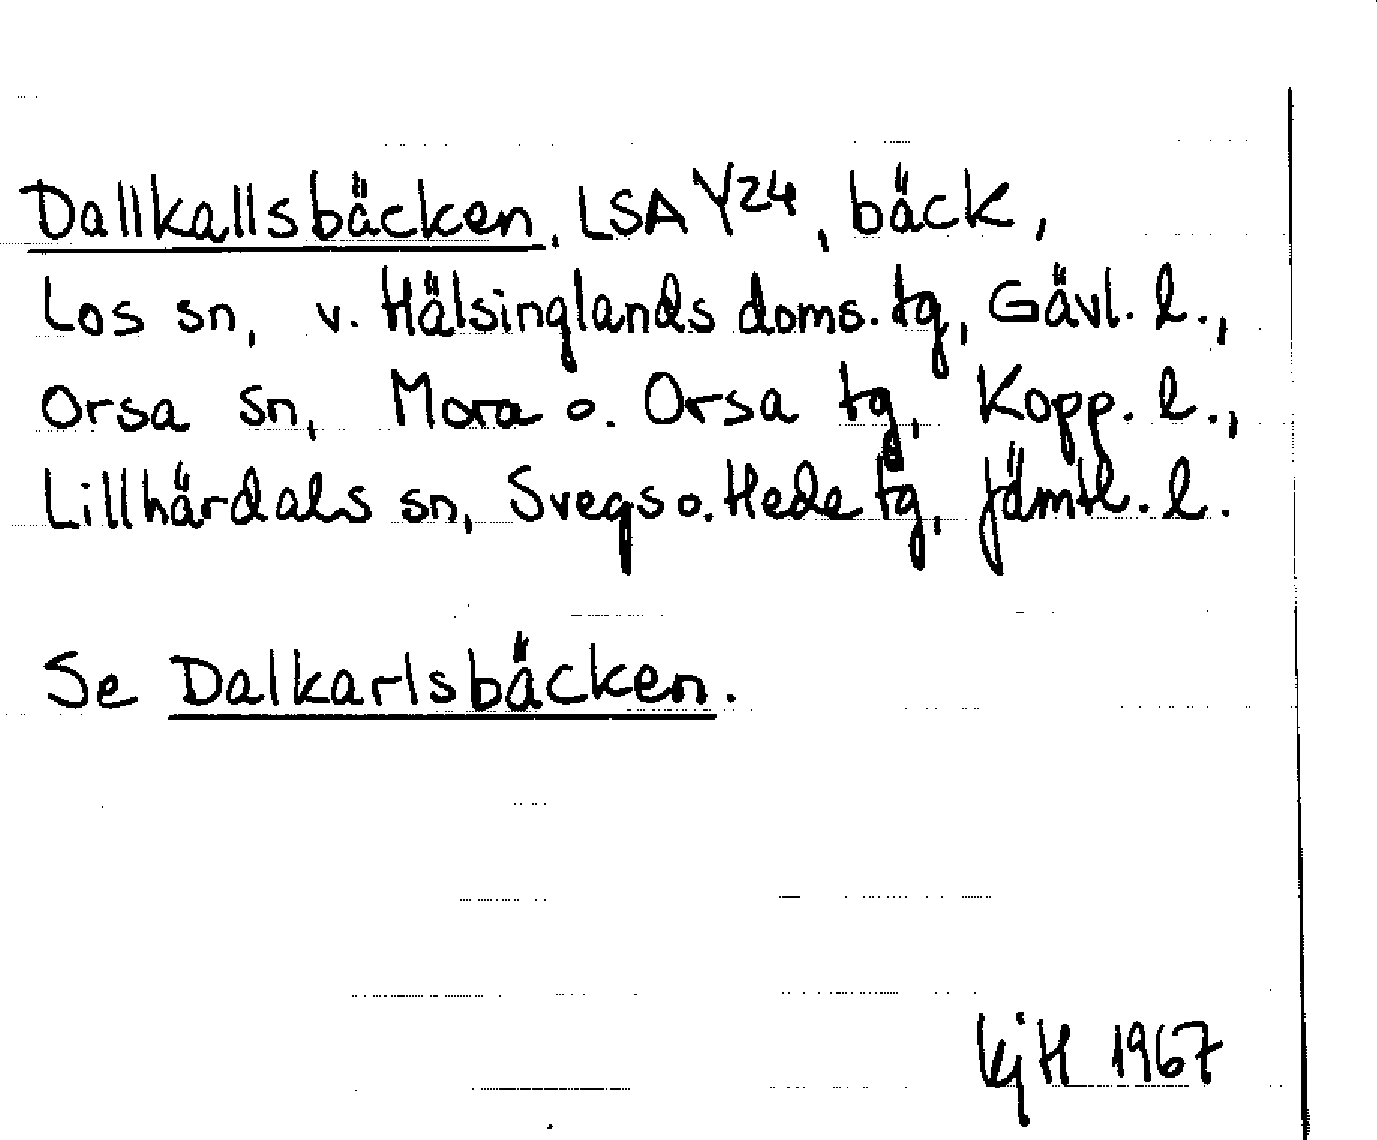 Dallkallsbäcken, LSA Y24, bäck,
Los sn, v. Hälsinglands doms. tg, Gävl. l.,
Orsa sn, Mora o. Orsa tg, Kopp. l.,
Lillhärdals sn, Svegs o. Hede tg, Jämtl. l.
Se Dalkarlsbäcken.
KjH 1967